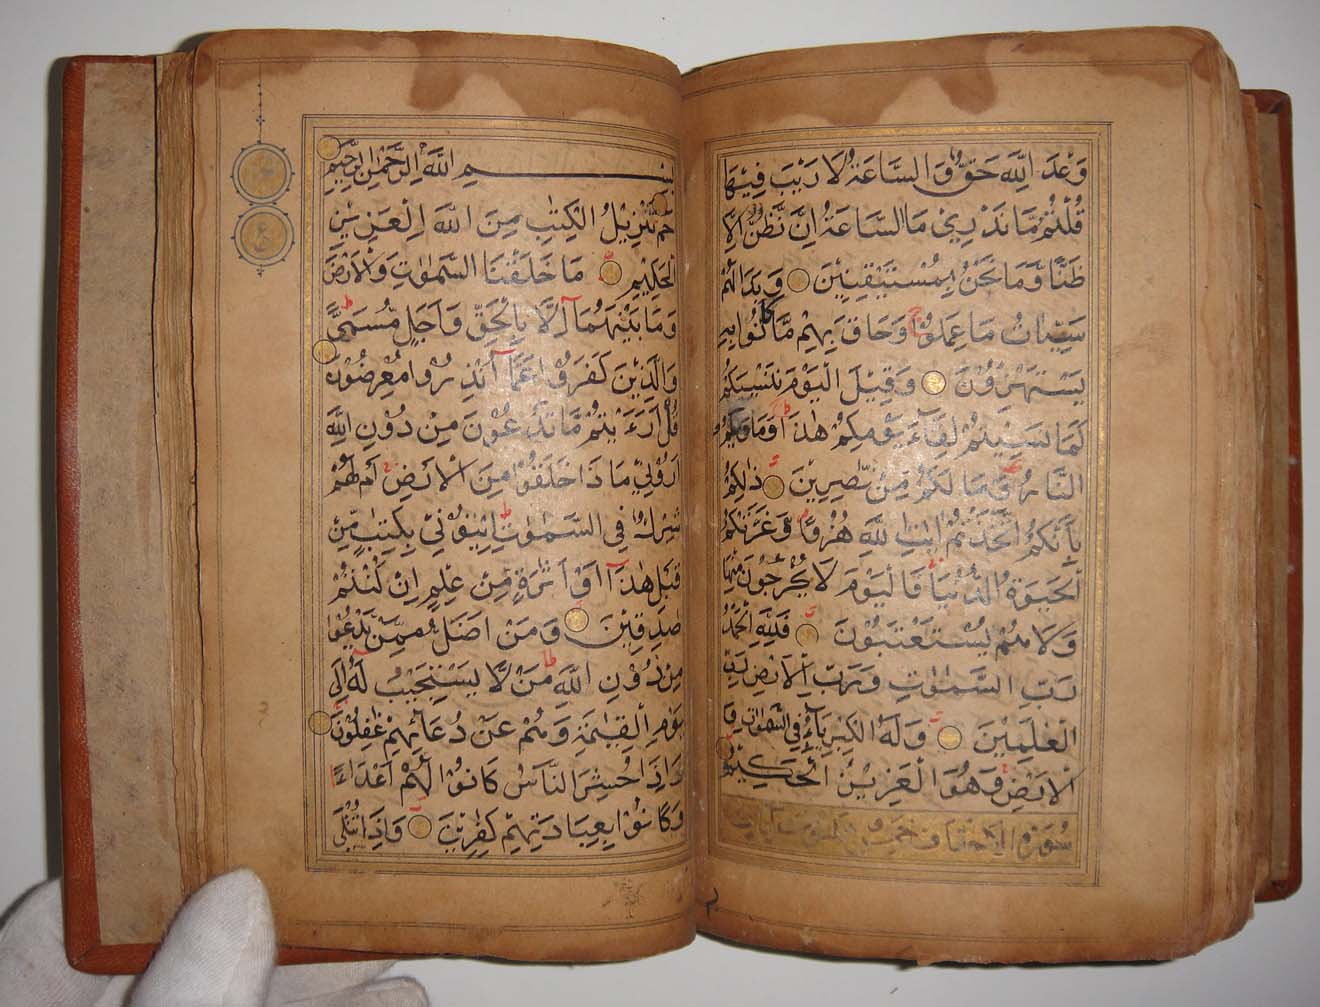 وَعْدَ اللَّهِ حَقٌّ وَّ السَّاعَةُ لَا رَيْبَ فِيْهَا
قُلْتُمْ مَّا نَدْرِيْ مَا السَّاعَةُ اِنْ نَّظُنُّ اِلَّا
ظَنًّا وَّ مَا نَحْنُ بِمُسْتَيْقِنِيْنَ وَبَدَا لَهُمْ
سَيِّئَاتُ مَا عَمِلُوْا وَحَاقَ بِهِمْ مَّا كَانُوْا بِهٖ
يَسْتَهْزِءُوْنَ وَقِيْلَ الْيَوْمَ نَنْسٰىكُمْ
كَمَا نَسِيْتُمْ لِقَآءَ يَوْمِكُمْ هٰذَا وَمَاْوٰىكُمُ
النَّارُ وَ مَا لَكُمْ مِّنْ نّٰصِرِيْنَ ذٰلِكُمْ
بِاَنَّكُمُ اتَّخَذْتُمْ اٰيٰتِ اللَّهِ هُزُوًا وَّ غَرَّتْكُمُ
الْحَيٰوةُ الدُّنْيَا فَالْيَوْمَ لَا يُخْرَجُوْنَ مِنْهَا
وَلَا هُمْ يُسْتَعْتَبُوْنَ فَلِلّٰهِ الْحَمْدُ
رَبِّ السَّمٰوٰتِ وَ رَبِّ الْاَرْضِ رَبِّ
الْعٰلَمِيْنَ وَ لَهُ الْكِبْرِيَآءُ فِي السَّمٰوٰتِ وَ
الْاَرْضِ وَهُوَ الْعَزِيْزُ الْحَكِيْمُ
سُوْرَةُ الْاَحْقَافِ
بِسْمِ اللَّهِ الرَّحْمٰنِ الرَّحِيْمِ
حٰمٓ تَنْزِيْلُ الْكِتٰبِ مِنَ اللَّهِ الْعَزِيْزِ
الْحَكِيْمِ مَا خَلَقْنَا السَّمٰوٰتِ وَالْاَرْضَ
وَمَا بَيْنَهُمَا اِلَّا بِالْحَقِّ وَ اَجَلٍ مُّسَمًّى
وَالَّذِيْنَ كَفَرُوْا عَمَّا اُنْذِرُوْا مُعْرِضُوْنَ
قُلْ اَرَءَيْتُمْ مَّا تَدْعُوْنَ مِنْ دُوْنِ اللَّهِ
اَرُوْنِيْ مَا ذَا خَلَقُوْا مِنَ الْاَرْضِ اَمْ لَهُمْ
شِرْكٌ فِي السَّمٰوٰتِ اِيْتُوْنِيْ بِكِتٰبٍ مِّنْ
قَبْلِ هٰذَا اَوْ اَثٰرَةٍ مِّنْ عِلْمٍ اِنْ كُنْتُمْ
صٰدِقِيْنَ وَمَنْ اَضَلُّ مِمَّنْ يَّدْعُوْا
مِنْ دُوْنِ اللَّهِ مَنْ لَّا يَسْتَجِيْبُ لَهٗ اِلٰى
يَوْمِ الْقِيٰمَةِ وَهُمْ عَنْ دُعَآئِهِمْ غٰفِلُوْنَ
وَ اِذَا حُشِرَ النَّاسُ كَانُوْا لَهُمْ اَعْدَآءً
وَّكَانُوْا بِعِبَادَتِهِمْ كٰفِرِيْنَ وَاِذَا تُتْلٰى